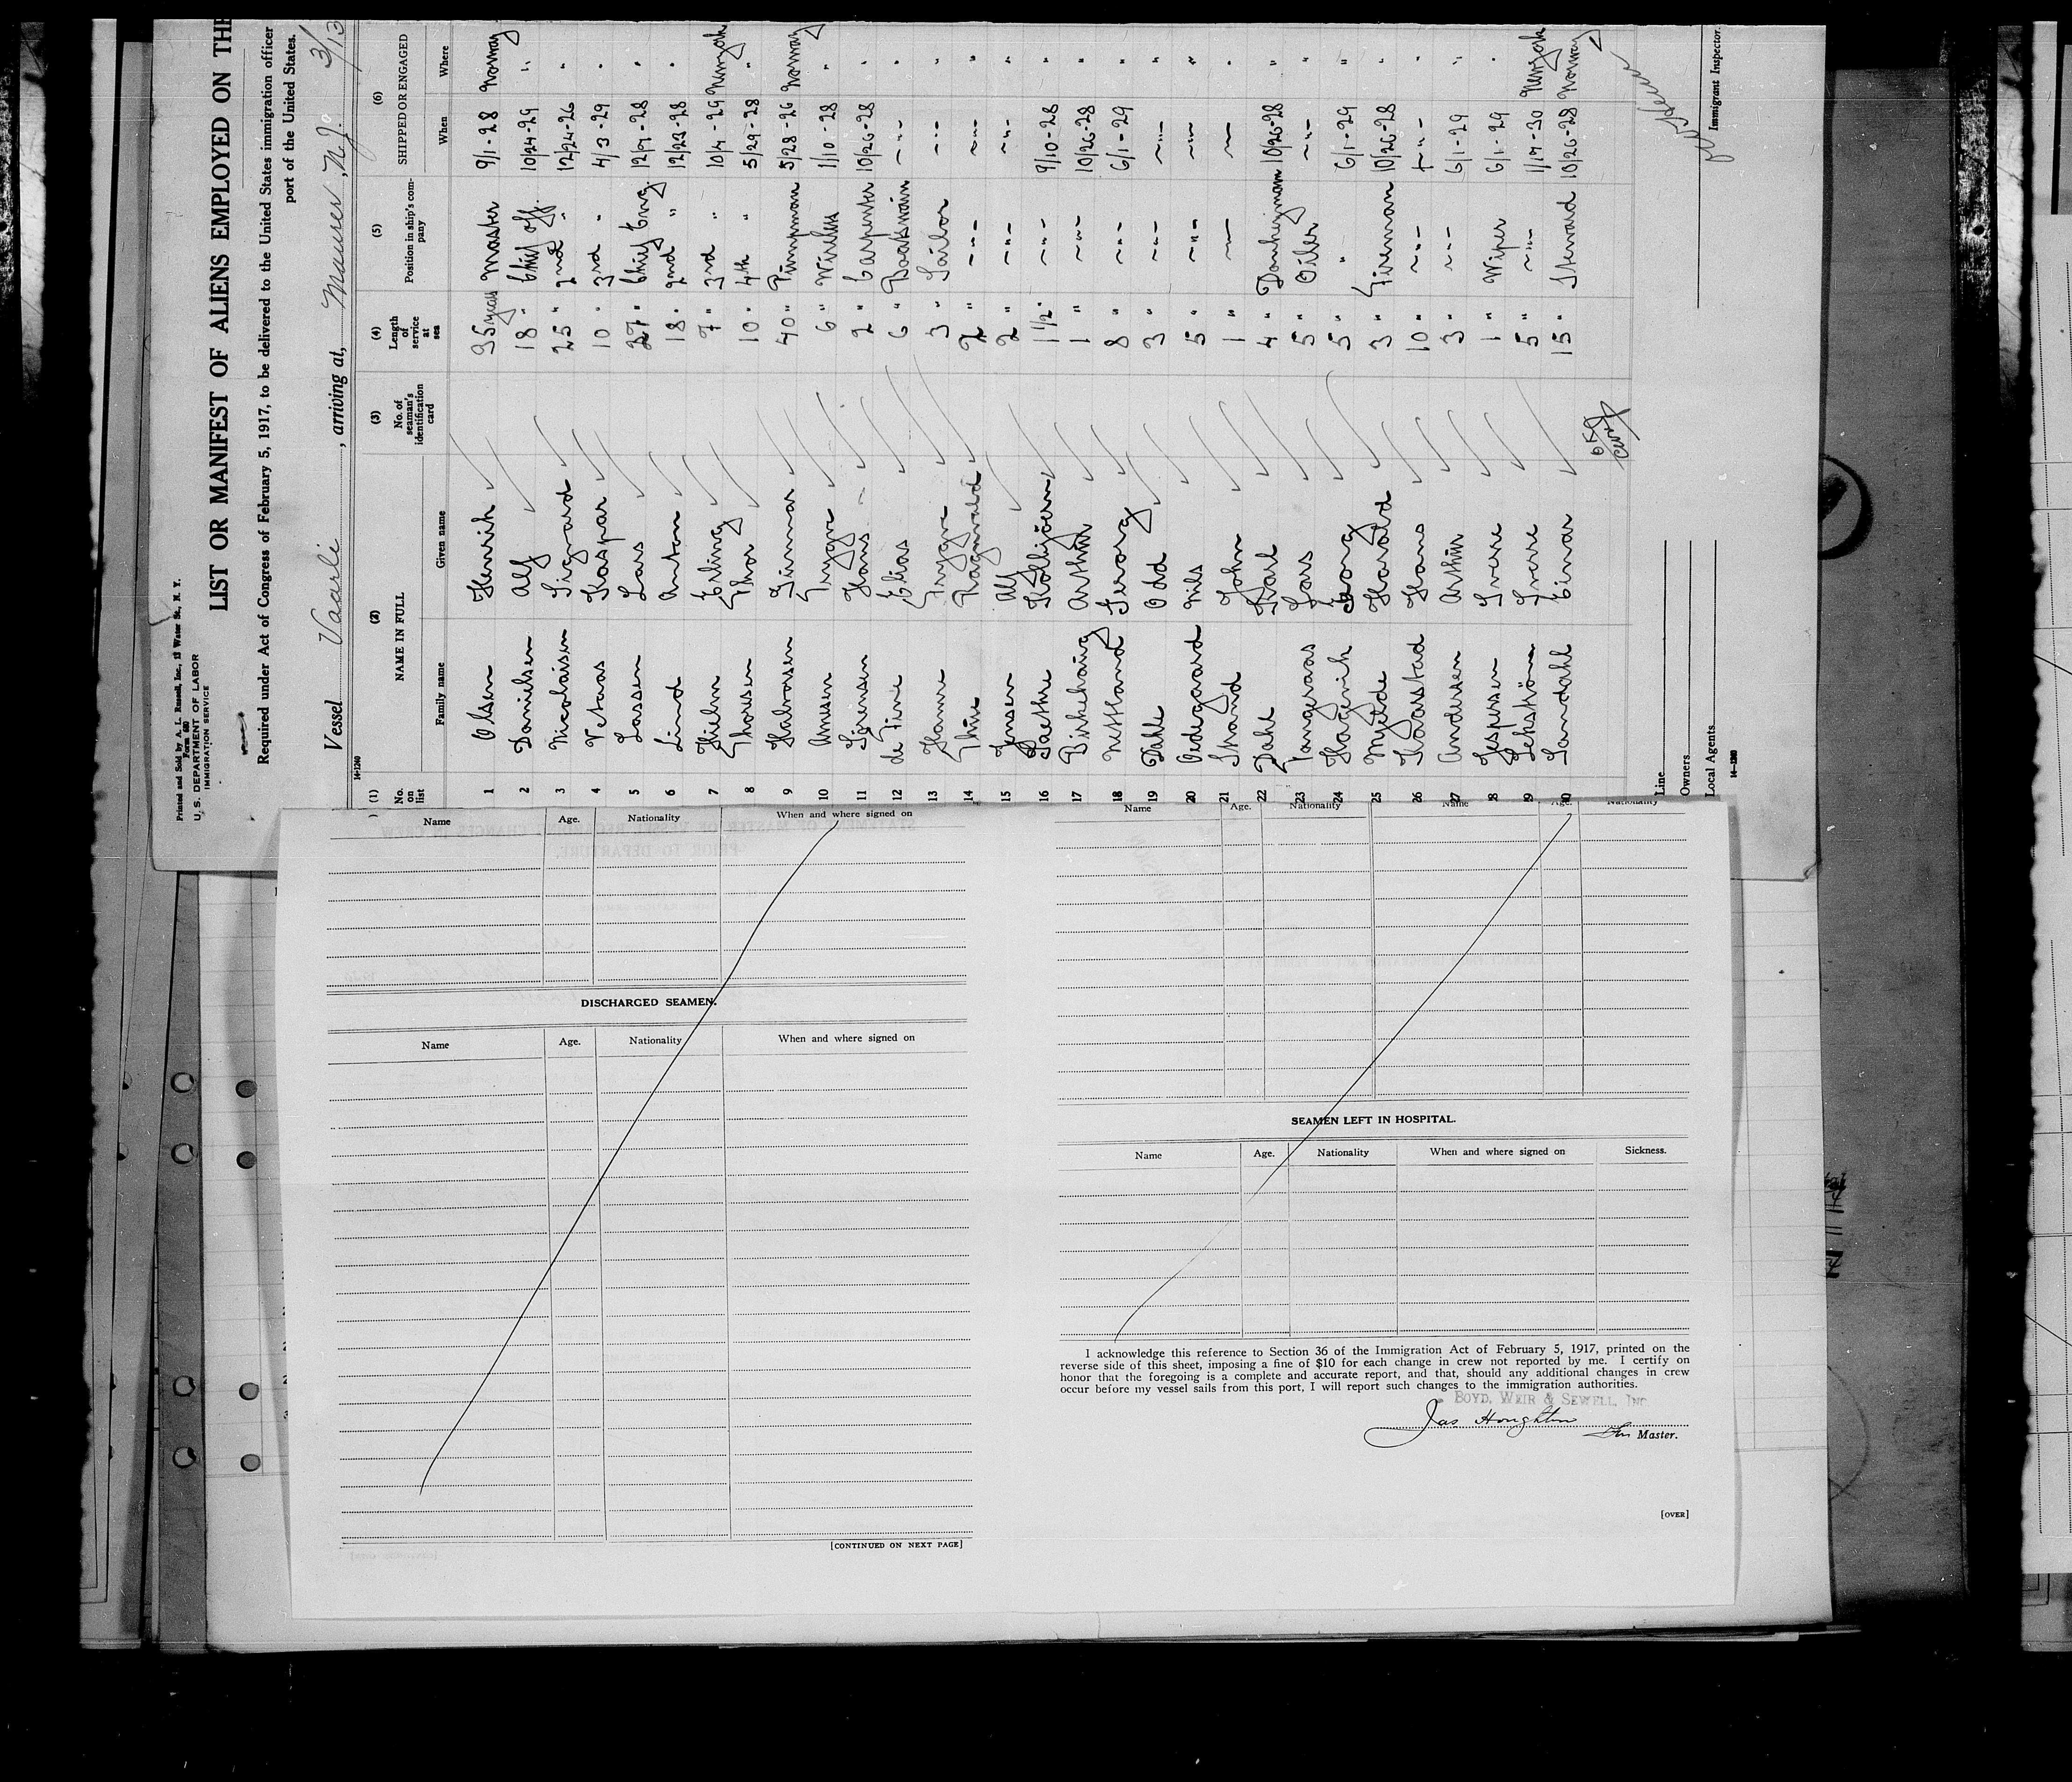 Printed and Sold by A. L. Russell, Inc., 12 Water St., N. Y.
Form 680
U. S. DEPARTMENT OF LABOR
IMMIGRATION SERVICE
LIST OR MANIFEST OF ALIENS EMPLOYED ON THE
Required under Act of Congress of February 5, 1917, to be delivered to the United States immigration officer
port of the United States.
Vessel Vaarli, arriving at, Maurer, N.J. 3/13
14-1240
(1) (2) (3) (4) (5) (6)
No. on list NAME IN FULL No. of seaman's identification card Length of service at sea Position in ship's company SHIPPED OR ENGAGED
Family name Given name When Where
1 Olsen Henrik 35 years Master 9/1-28 Norway
2 Danielsen Alf 18 " Chief off. 10/24-29 "
3 Nicolaisen Sigvard 25 " 2nd " 12/24-26 "
4 Vetaas Kaspar 10 " 3rd " 4/3-29 "
5 Lassen Lars 27 " Chief Eng. 12/7-28 "
6 Lind Anton 18 " 2nd " 12/23-28 "
7 Hielm Erling 7 " 3rd " 10/4-29 New York
8 Thorsen Thor 10 " 4th " 5/29-28 "
9 Halvorsen Gunnar 40 " Pumpman 5/28-26 Norway
10 Amsen Trygve 6 " Wireless 1/10-28 "
11 Sörensen Hans 2 " Carpenter 10/26-28 "
12 de Fine Elias 6 " Boatswain -"- "
13 Hanne Trygve 3 " Sailor -"- "
14 Thue Ragnvald 2 " -"- -"- "
15 Jensen Alf 2 " -"- -"- "
16 Saethre Kolbjörn 1 1/2 " -"- 9/10-28 "
17 Birkehaug Arthur 1 " -"- 10/26-28 "
18 Netland Georg 8 " -"- 6/1-29 "
19 Dahle Odd 3 " -"- -"- "
20 Oedegaard Nils 5 " -"- -"- "
21 Strand John 1 " -"- -"- "
22 Dahl Karl 4 " Donkeyman 10/26-28 "
23 Tangeraas Lars 5 " Oiler -"- "
24 Hagerik Georg 5 " " 6/1-29 "
25 Myrtde Harald 3 " Fireman 10/26-28 "
26 Haarstad Hans 10 " -"- -"- "
27 Andersen Arthur 3 " -"- 6/1-29 "
28 Jespersen Sverre 1 " Wiper 6/1-29 "
29 Sekström Sverre 5 " -"- 1/17-30 New York
30 Sandahl Einar 15 " Steward 10/26-28 Norway
Line
Owners
Local Agents
14-1240
Immigrant Inspector.
Name Age. Nationality When and where signed on
DISCHARGED SEAMEN.
Name Age. Nationality When and where signed on
[CONTINUED ON NEXT PAGE]
Name Age. Nationality Name Age. Nationality
SEAMEN LEFT IN HOSPITAL.
Name Age. Nationality When and where signed on Sickness.
I acknowledge this reference to Section 36 of the Immigration Act of February 5, 1917, printed on the
reverse side of this sheet, imposing a fine of $10 for each change in crew not reported by me. I certify on
honor that the foregoing is a complete and accurate report, and that, should any additional changes in crew
occur before my vessel sails from this port, I will report such changes to the immigration authorities.
BOYD, WEIR & SEWELL, INC.
Jas Houghton
Master.
[OVER]